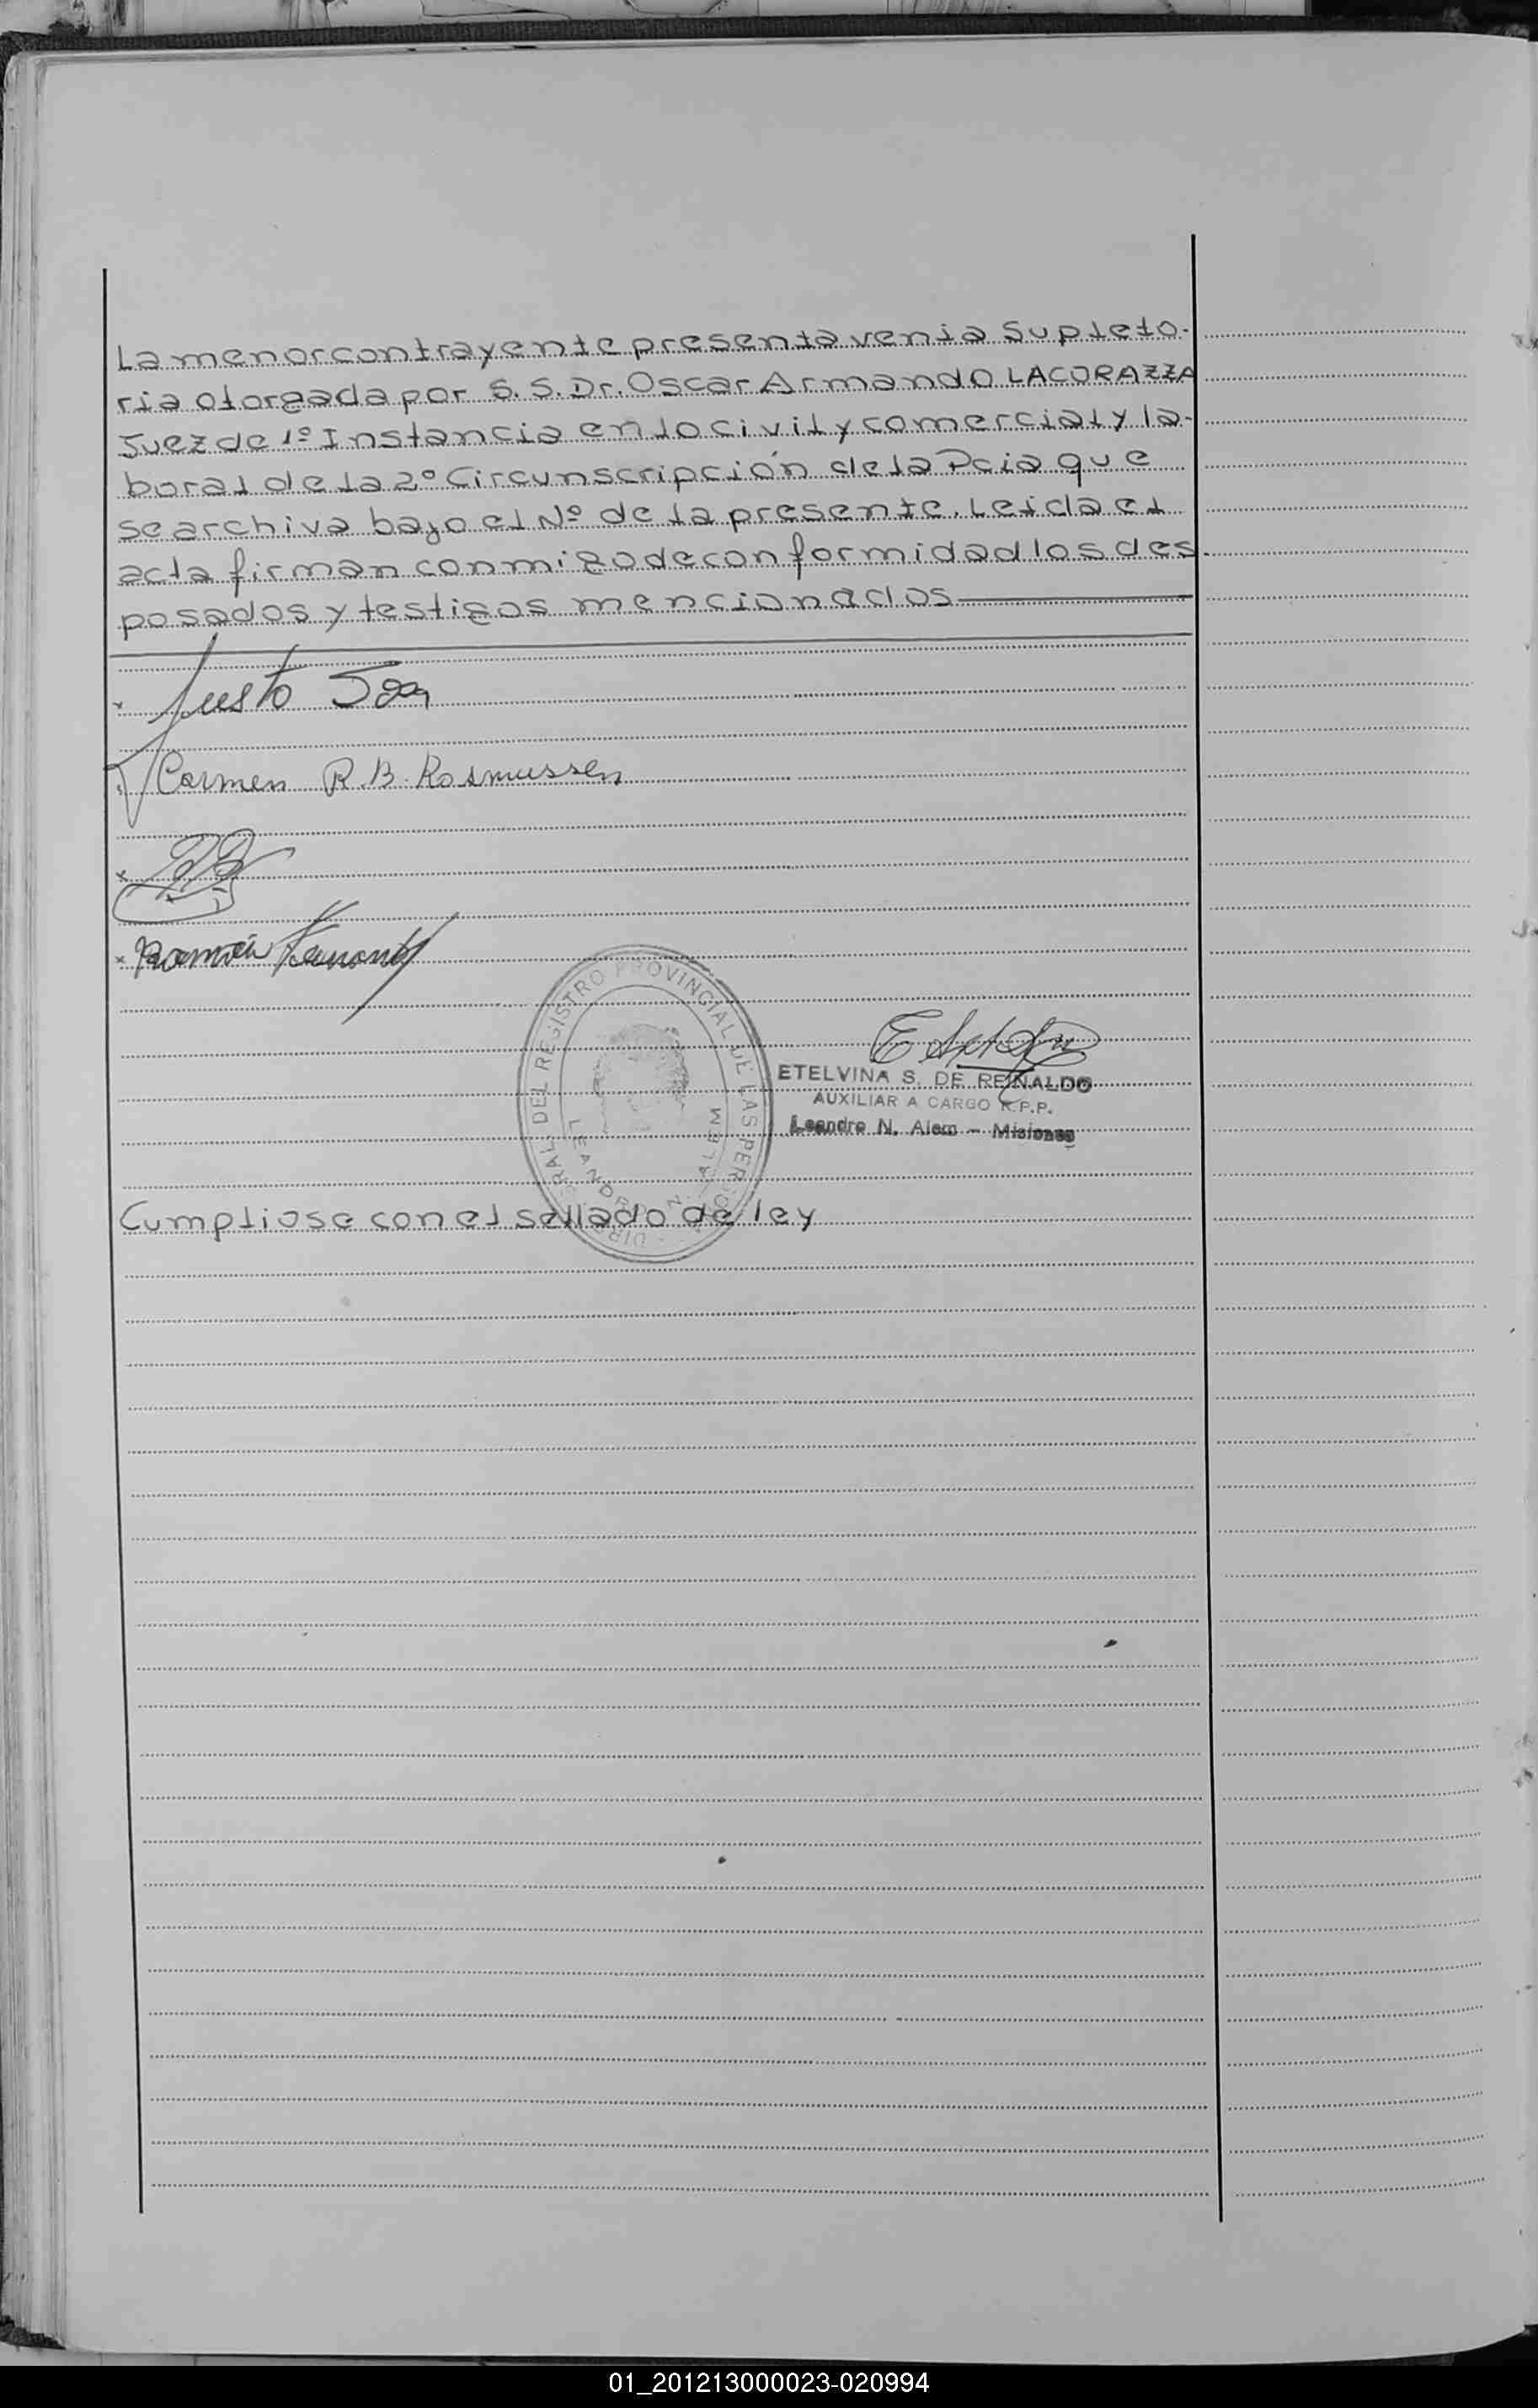 La menor contrayente presenta venia supleto-
ria otorgada por S.S. Dr. Oscar Armando LACORAZZA
Juez de 1º Instancia en lo civil y comercial y la-
boral de la 2º Circunscripción de la Pcia que
se archiva bajo el Nº de la presente. Leida el
acta firman conmigo de conformidad los des-
posados y testigos mencionados
x Justo
x Carmen R.B. Rasmussen
x
x Ramón
DEL REGISTRO PROVINCIAL DE LAS PERSONAS
LEANDRO N. ALEM
ETELVINA S. DE REINALDO
AUXILIAR A CARGO R.P.P.
Leandro N. Alem - Misiones
Cumpliose con el sellado de ley
01_201213000023-020994